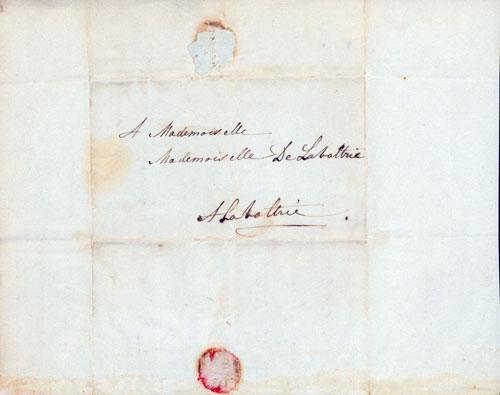 A Mademoiselle
Mademoiselle De Labattrie
A Labattrie